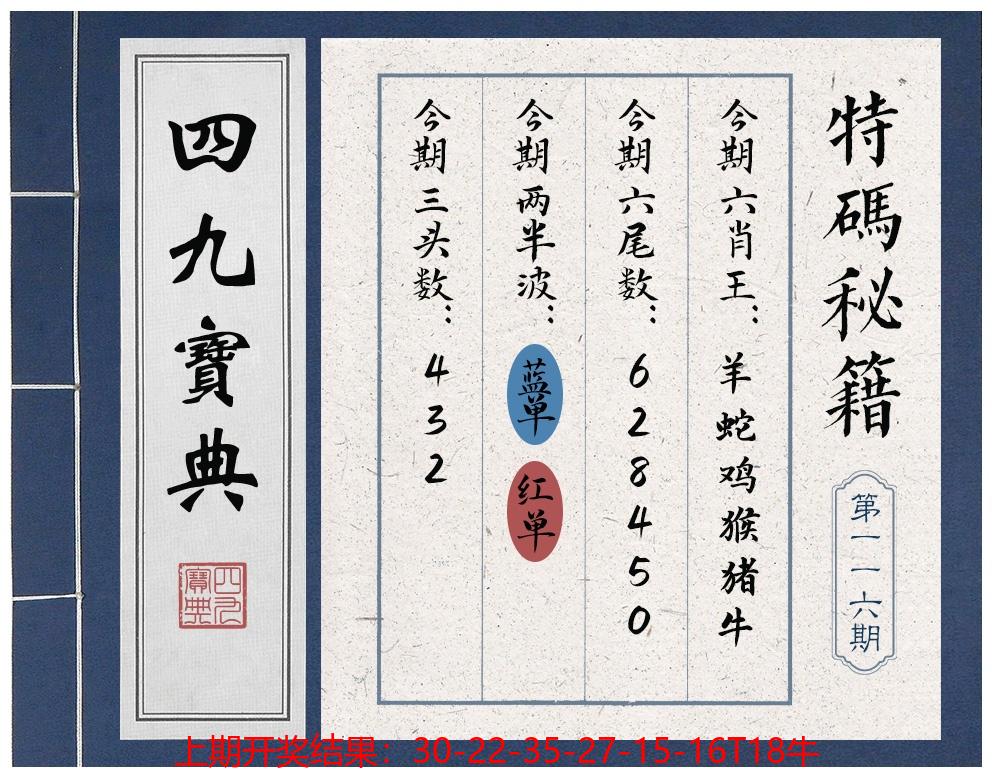 特碼秘籍
第一一六期
今期六肖王：羊蛇鸡猴猪牛
今期六尾数：628450
今期两半波：蓝单 红单
今期三头数：432
四九寶典
四九寶典
上期开奖结果：30-22-35-27-15-16T18牛